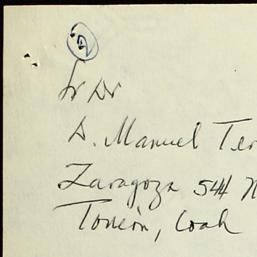 Sr Dr
D. Manuel Ter
Zaragoza 544 N
Torreón, Coah